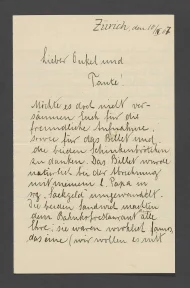 Zürich, den 10/IX 17
Lieber Onkel und
Tante!
Möchte es doch nicht ver-
säumen Euch für die
freundliche Aufnahme,
sowie für das Billet und
die beiden Schinkenbrötchen
zu danken. Das Billet wurde
natürlich bei der Abrechnung
mit meinem l. Papa in
sog. "Sackgeld" umgewandelt.
Die beiden Sandwich machten
dem Bahnhofrestaurant alle
Ehre, sie waren wirklich famos,
das eine (wir wollen es nicht